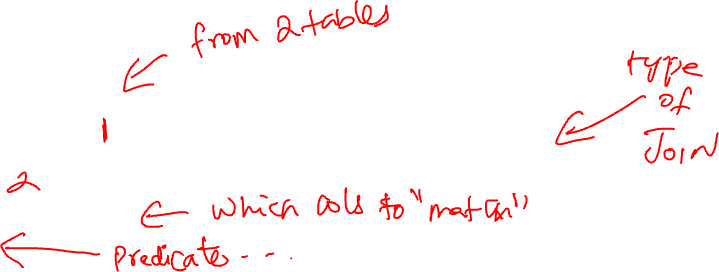 from 2 tables
type
of
JOIN
1
2
which cols to "match"
predicate - - .